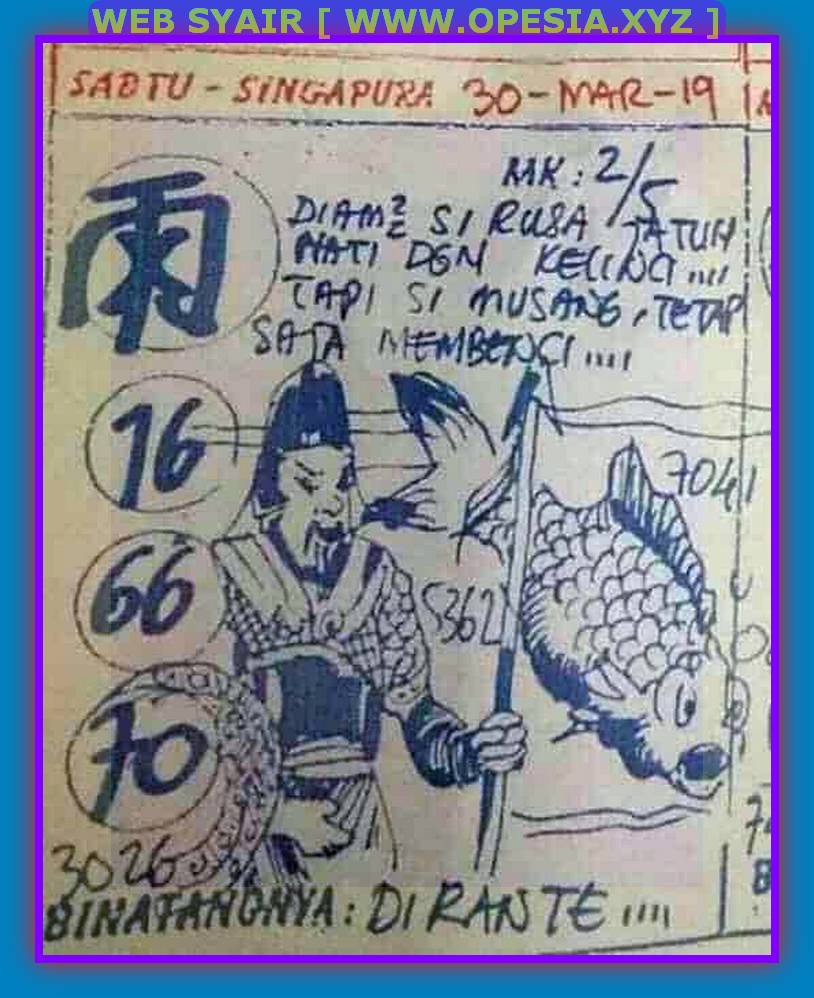 WEB SYAIR [ WWW.OPESIA.XYZ ]
SABTU - SINGAPURA 30-MAR-19
MK : 2/5
雨
DIAM2 SI RUSA JATUH
HATI DGN KELINCI....
TAPI SI MUSANG, TETAP
SAJA MEMBENCI....
16
7041
66
5362
70
3026
BINATANGNYA: DI RANTE....